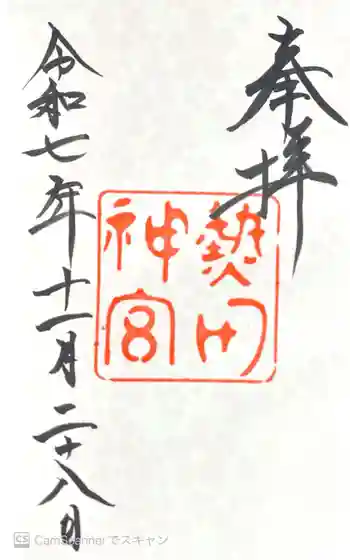 奉拝
熱田
神宮
令和七年十一月二十八日
CS CamScanner でスキャン